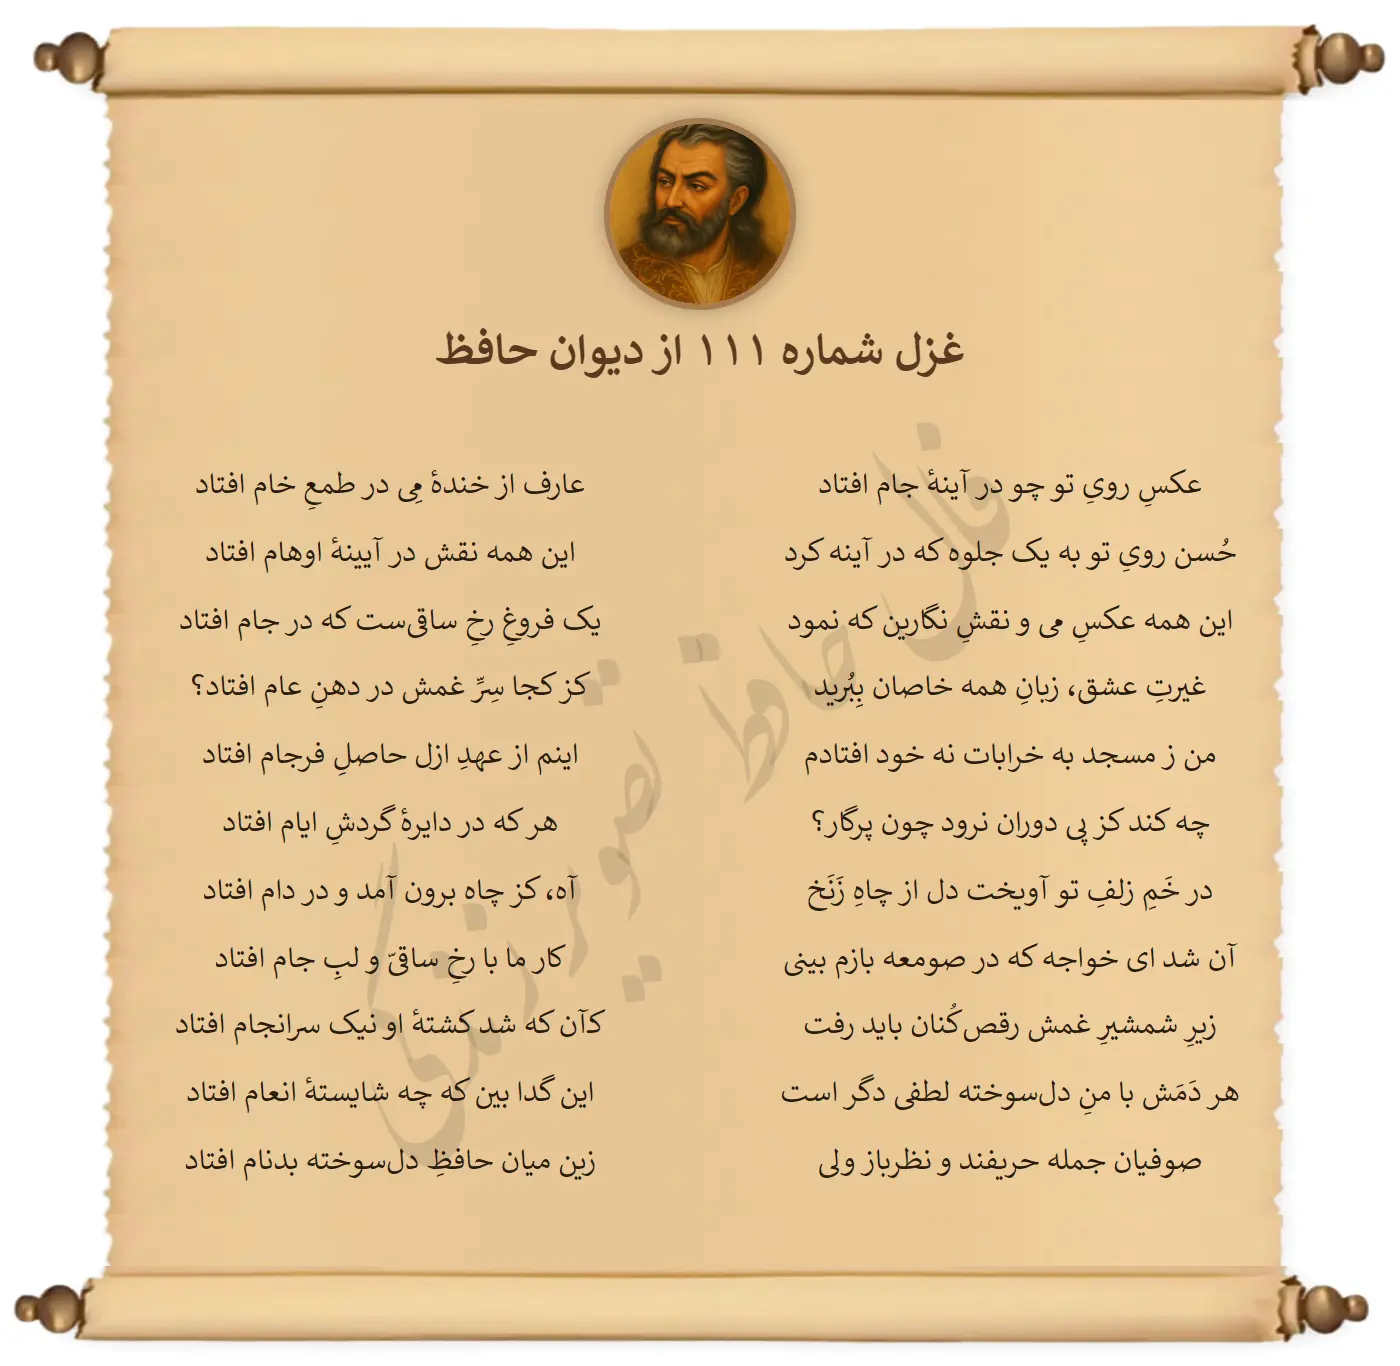 غزل شماره ۱۱۱ از دیوان حافظ
عکسِ رویِ تو چو در آینهٔ جام افتاد
عارف از خندهٔ مِی در طمعِ خام افتاد
حُسن رویِ تو به یک جلوه که در آینه کرد
این همه نقش در آیینهٔ اوهام افتاد
این همه عکسِ می و نقشِ نگارین که نمود
یک فروغِ رخِ ساقی‌ست که در جام افتاد
غیرتِ عشق، زبانِ همه خاصان بِبُرید
کز کجا سِرِّ غمش در دهنِ عام افتاد؟
من ز مسجد به خرابات نه خود افتادم
اینم از عهدِ ازل حاصلِ فرجام افتاد
چه کند کز پی دوران نرود چون پرگار؟
هر که در دایرهٔ گردشِ ایام افتاد
در خَمِ زلفِ تو آویخت دل از چاهِ زَنَخ
آه، کز چاه برون آمد و در دام افتاد
آن شد ای خواجه که در صومعه بازم بینی
کار ما با رخِ ساقیّ و لبِ جام افتاد
زیرِ شمشیرِ غمش رقص‌کُنان باید رفت
کآن که شد کشتهٔ او نیک سرانجام افتاد
هر دَمَش با منِ دل‌سوخته لطفی دگر است
این گدا بین که چه شایستهٔ انعام افتاد
صوفیان جمله حریفند و نظرباز ولی
زین میان حافظِ دل‌سوخته بدنام افتاد
فال حافظ تصویر زندگی